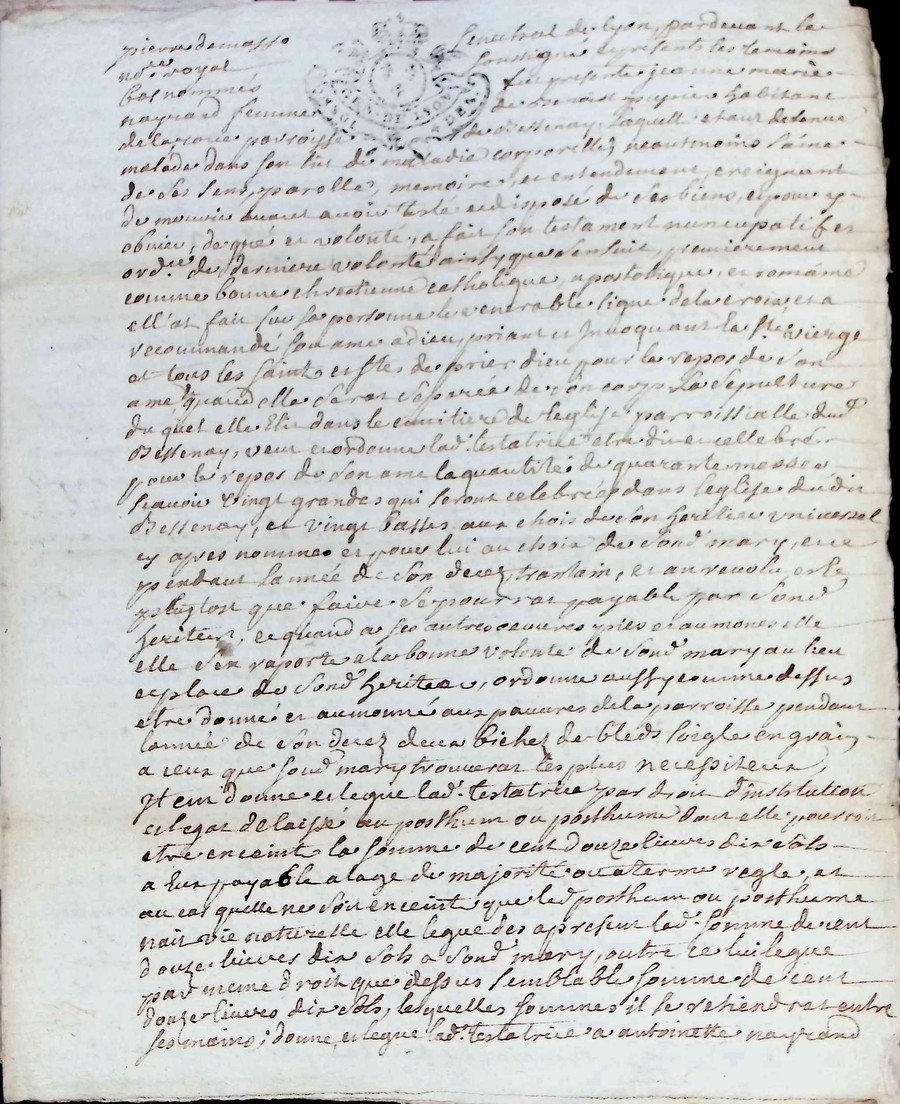 pierre demasso senechal de Lyon, pardevant le
no.re royal soussigne et presents les temoins
bas nommés fut presente jeanne marie
nayrand femme de Benoist habitant
de la parroisse de Bessenay, laquelle etant detenue
malade dans son lit de maladie corporellez neautmoins saine
de ses sens, parolle, memoire, et entendement, creignant
de mourir avant avoir testé et disposé de ses biens, et pour y
obvier, de gré et volonté, a fait son testament nuncupatif et
ord.ce de derniere volonté ainsy que s'ensuit, premierement
comme bonne chrestienne catholique, apostolique, et romaine
ell'at fait sur sa personne le venerable signe de la croix, et a
recommandé son ame a dieu, priant et Invoquant la s.te vierge
et tous les saints et s.tes de prier dieu pour le repos de son
ame quand elle serat separée de son corp, la sepulture
duquel elle Elit dans le cimitiere de l'eglise parroissialle dud.
Bessenay, veut et ordonne lad. testatrice etre dit et cellebré
pour le repos de son ame la quantités de quarante messes
scavoir vingt grandes qui seront celebrées dans l'eglise dudit
Bessenay, et vingt basses aux chois de son heritier universel
cy apres nommé et pour lui au choix de sond. mary, et ce
pendant l'année de son decez, trantain, et au revolu, et le
plustost que faire se pourrat payable par sond.
heritier, et quand a ses autres oeuvres pies et aumones elle
elle s'en raporte a la bonne volonté de sond. mary au lieu
et place de sond. heritier, ordonne aussy comme dessus
etre donné et aumonné aux pauvres de la parroisse pendant
l'année de son decez deux bichez de bleds soigle en grain
a ceux que sond. mary trouverat les plus necessiteux,
Item donne et legue lad. testatrice par droit d'institution
et legat delaisse au posthum ou posthume dont elle pourroit
etre enceint la somme de cent douze livres dix sols
a Eux payable a l'age de majorité ou a terme reglé, et
au cas quelle ne soit enceint que led. posthum ou posthume
n'ait vie naturelle elle legue des apresent lad. somme de cent
douze livres dix sols a sond. mary, outre ce lui legue
par meme droit que dessus semblable somme de cent
douze livres dix sols, lesquelles sommes il se retiendrat entre
ses mains; donne et legue lad. testatrice a antoinette nayrand